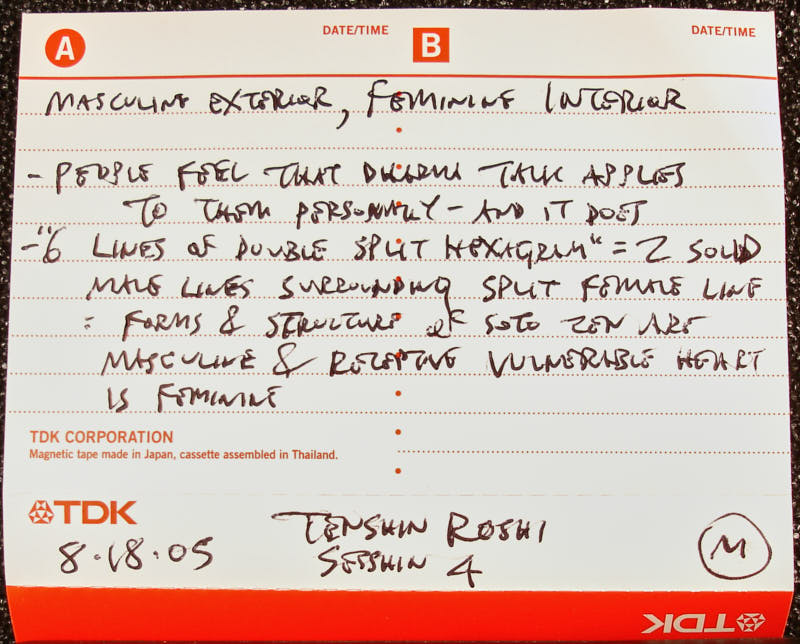 A DATE/TIME B DATE/TIME
MASCULINE EXTERIOR, FEMININE INTERIOR
- PEOPLE FEEL THAT DHARMA TALK APPLIES
TO THEM PERSONALLY - AND IT DOES
- "6 LINES OF DOUBLE SPLIT HEXAGRAM" = 2 SOLID
MALE LINES SURROUNDING SPLIT FEMALE LINE
= FORMS & STRUCTURE OF SOTO ZEN ARE
MASCULINE & RECEPTIVE VULNERABLE HEART
IS FEMININE
TDK CORPORATION
Magnetic tape made in Japan, cassette assembled in Thailand.
TDK
TENSHIN ROSHI
8.18.05 SESSHIN 4 M
TDK